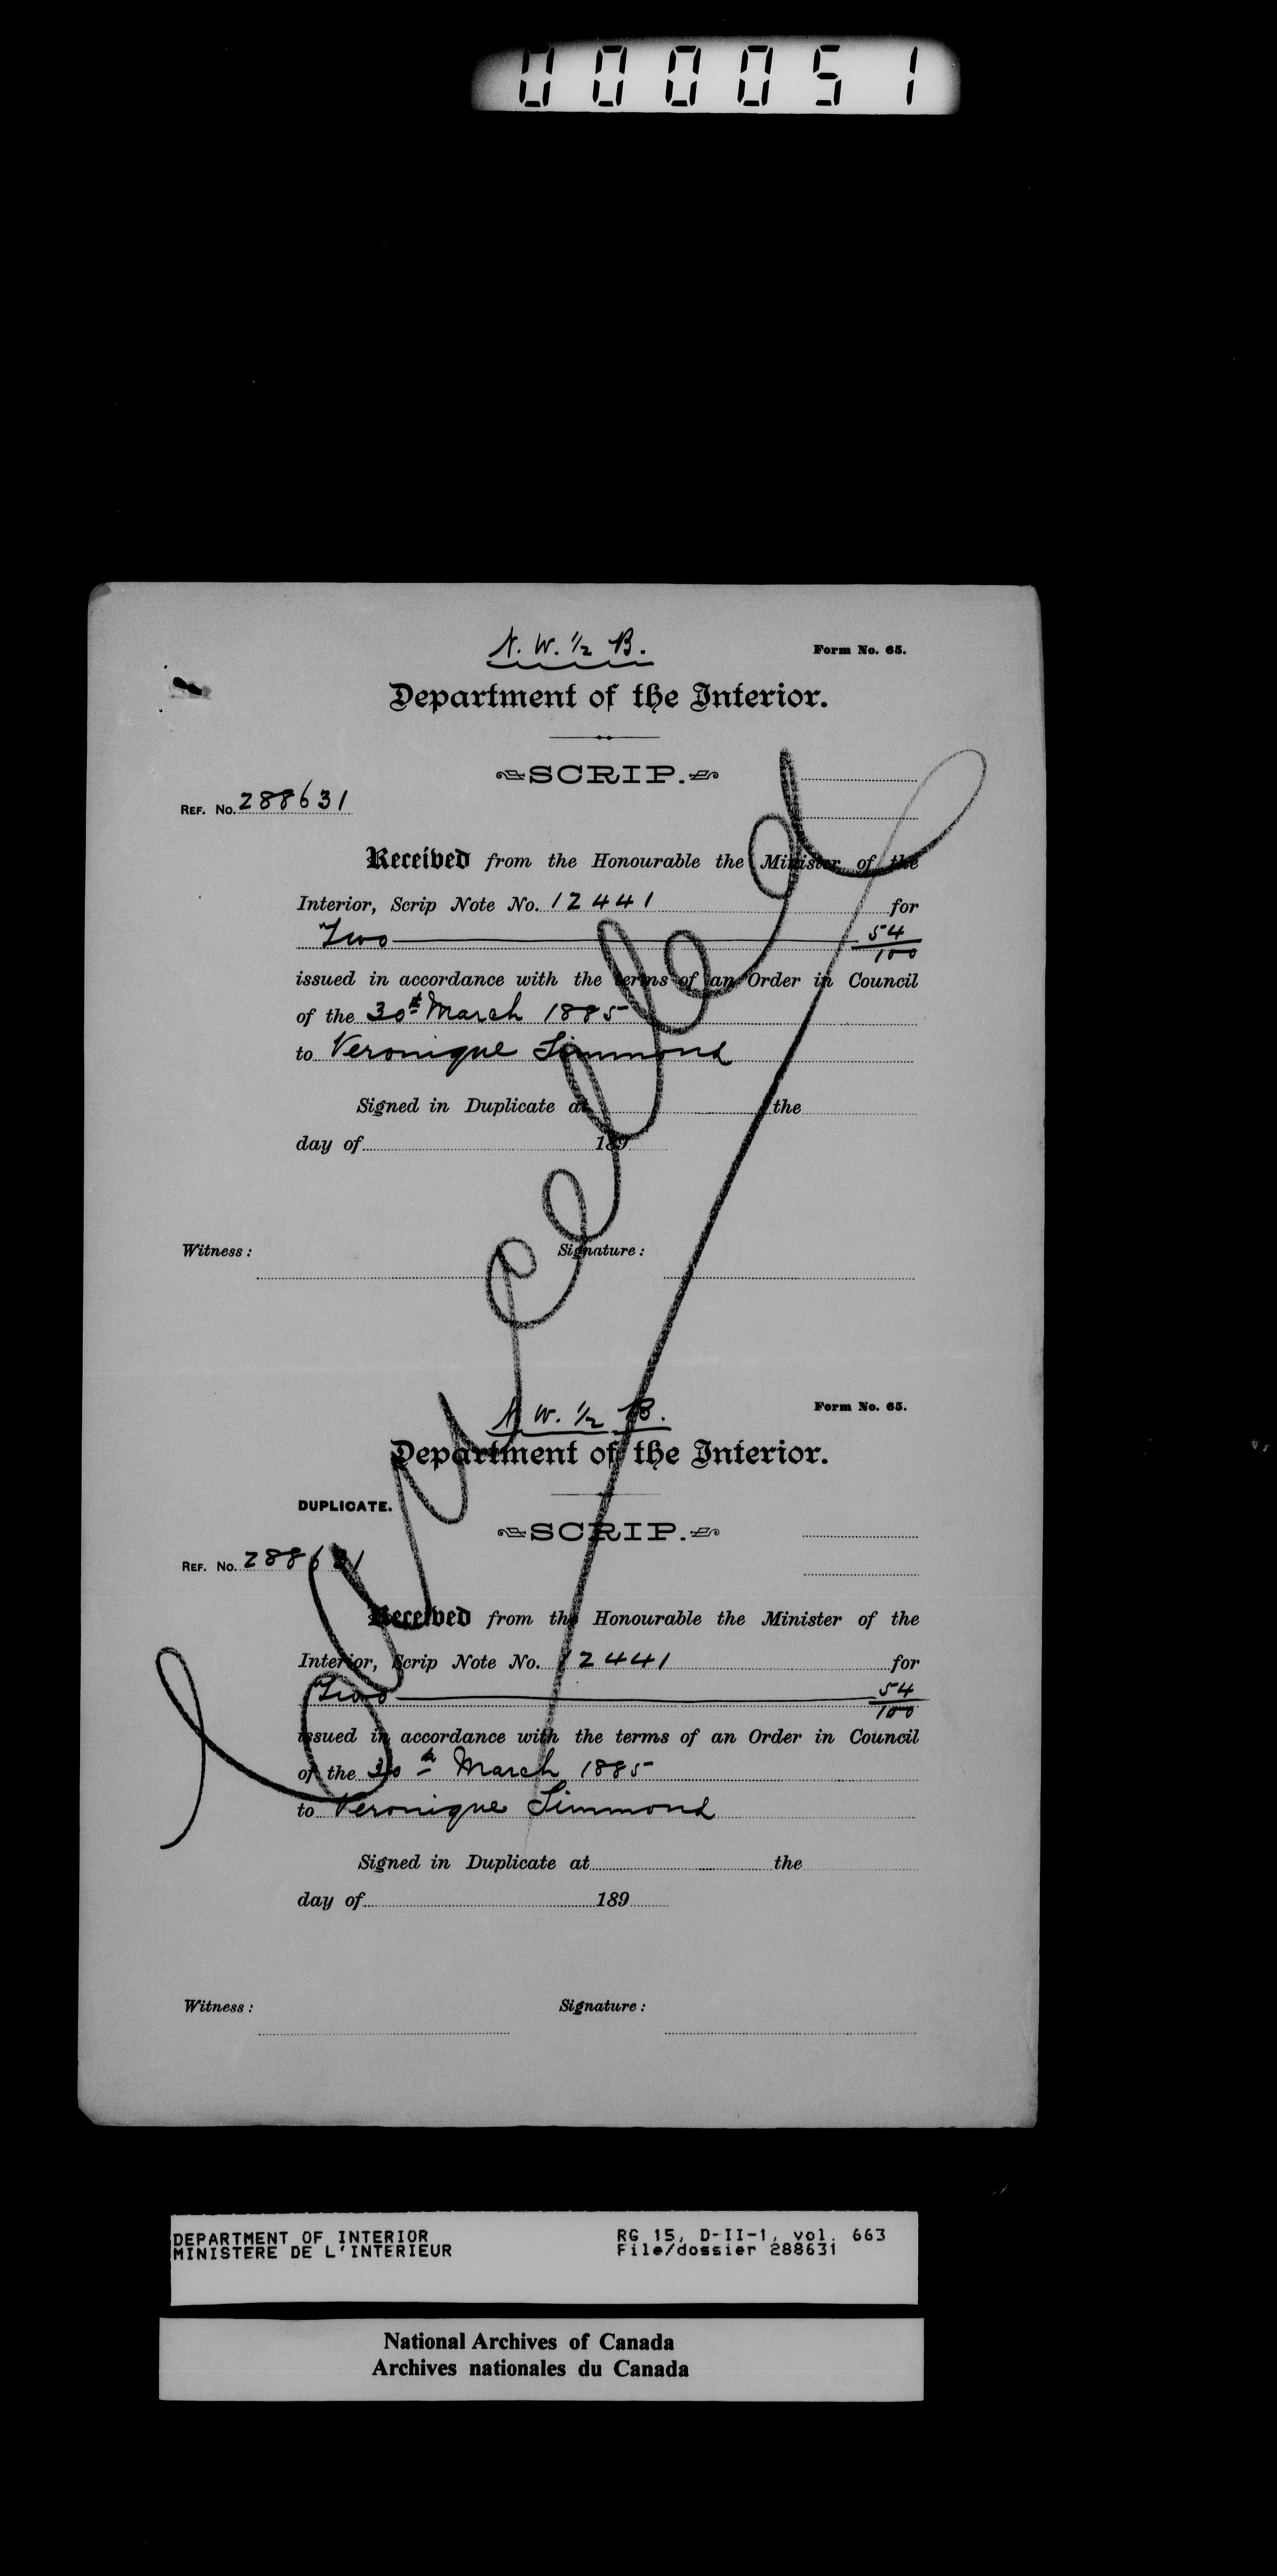 000051
N. W. ½ B.
Form No. 65.
Department of the Interior.
SCRIP.
REF. No. 288631
Received from the Honourable the Minister of the
Interior, Scrip Note No. 12441 for
Two 54/100
issued in accordance with the terms of an Order in Council
of the 30th March 1885
to Veronique Simmond
Signed in Duplicate at the
day of 189
Witness: Signature:
Cancelled
N. W. ½ B.
Form No. 65.
Department of the Interior.
DUPLICATE.
SCRIP.
REF. No. 288631
Received from the Honourable the Minister of the
Interior, Scrip Note No. 12441 for
Two 54/100
issued in accordance with the terms of an Order in Council
of the 30th March 1885
to Veronique Simmond
Signed in Duplicate at the
day of 189
Witness: Signature:
DEPARTMENT OF INTERIOR RG 15, D-II-1, vol. 663
MINISTERE DE L'INTERIEUR File/dossier 288631
National Archives of Canada
Archives nationales du Canada